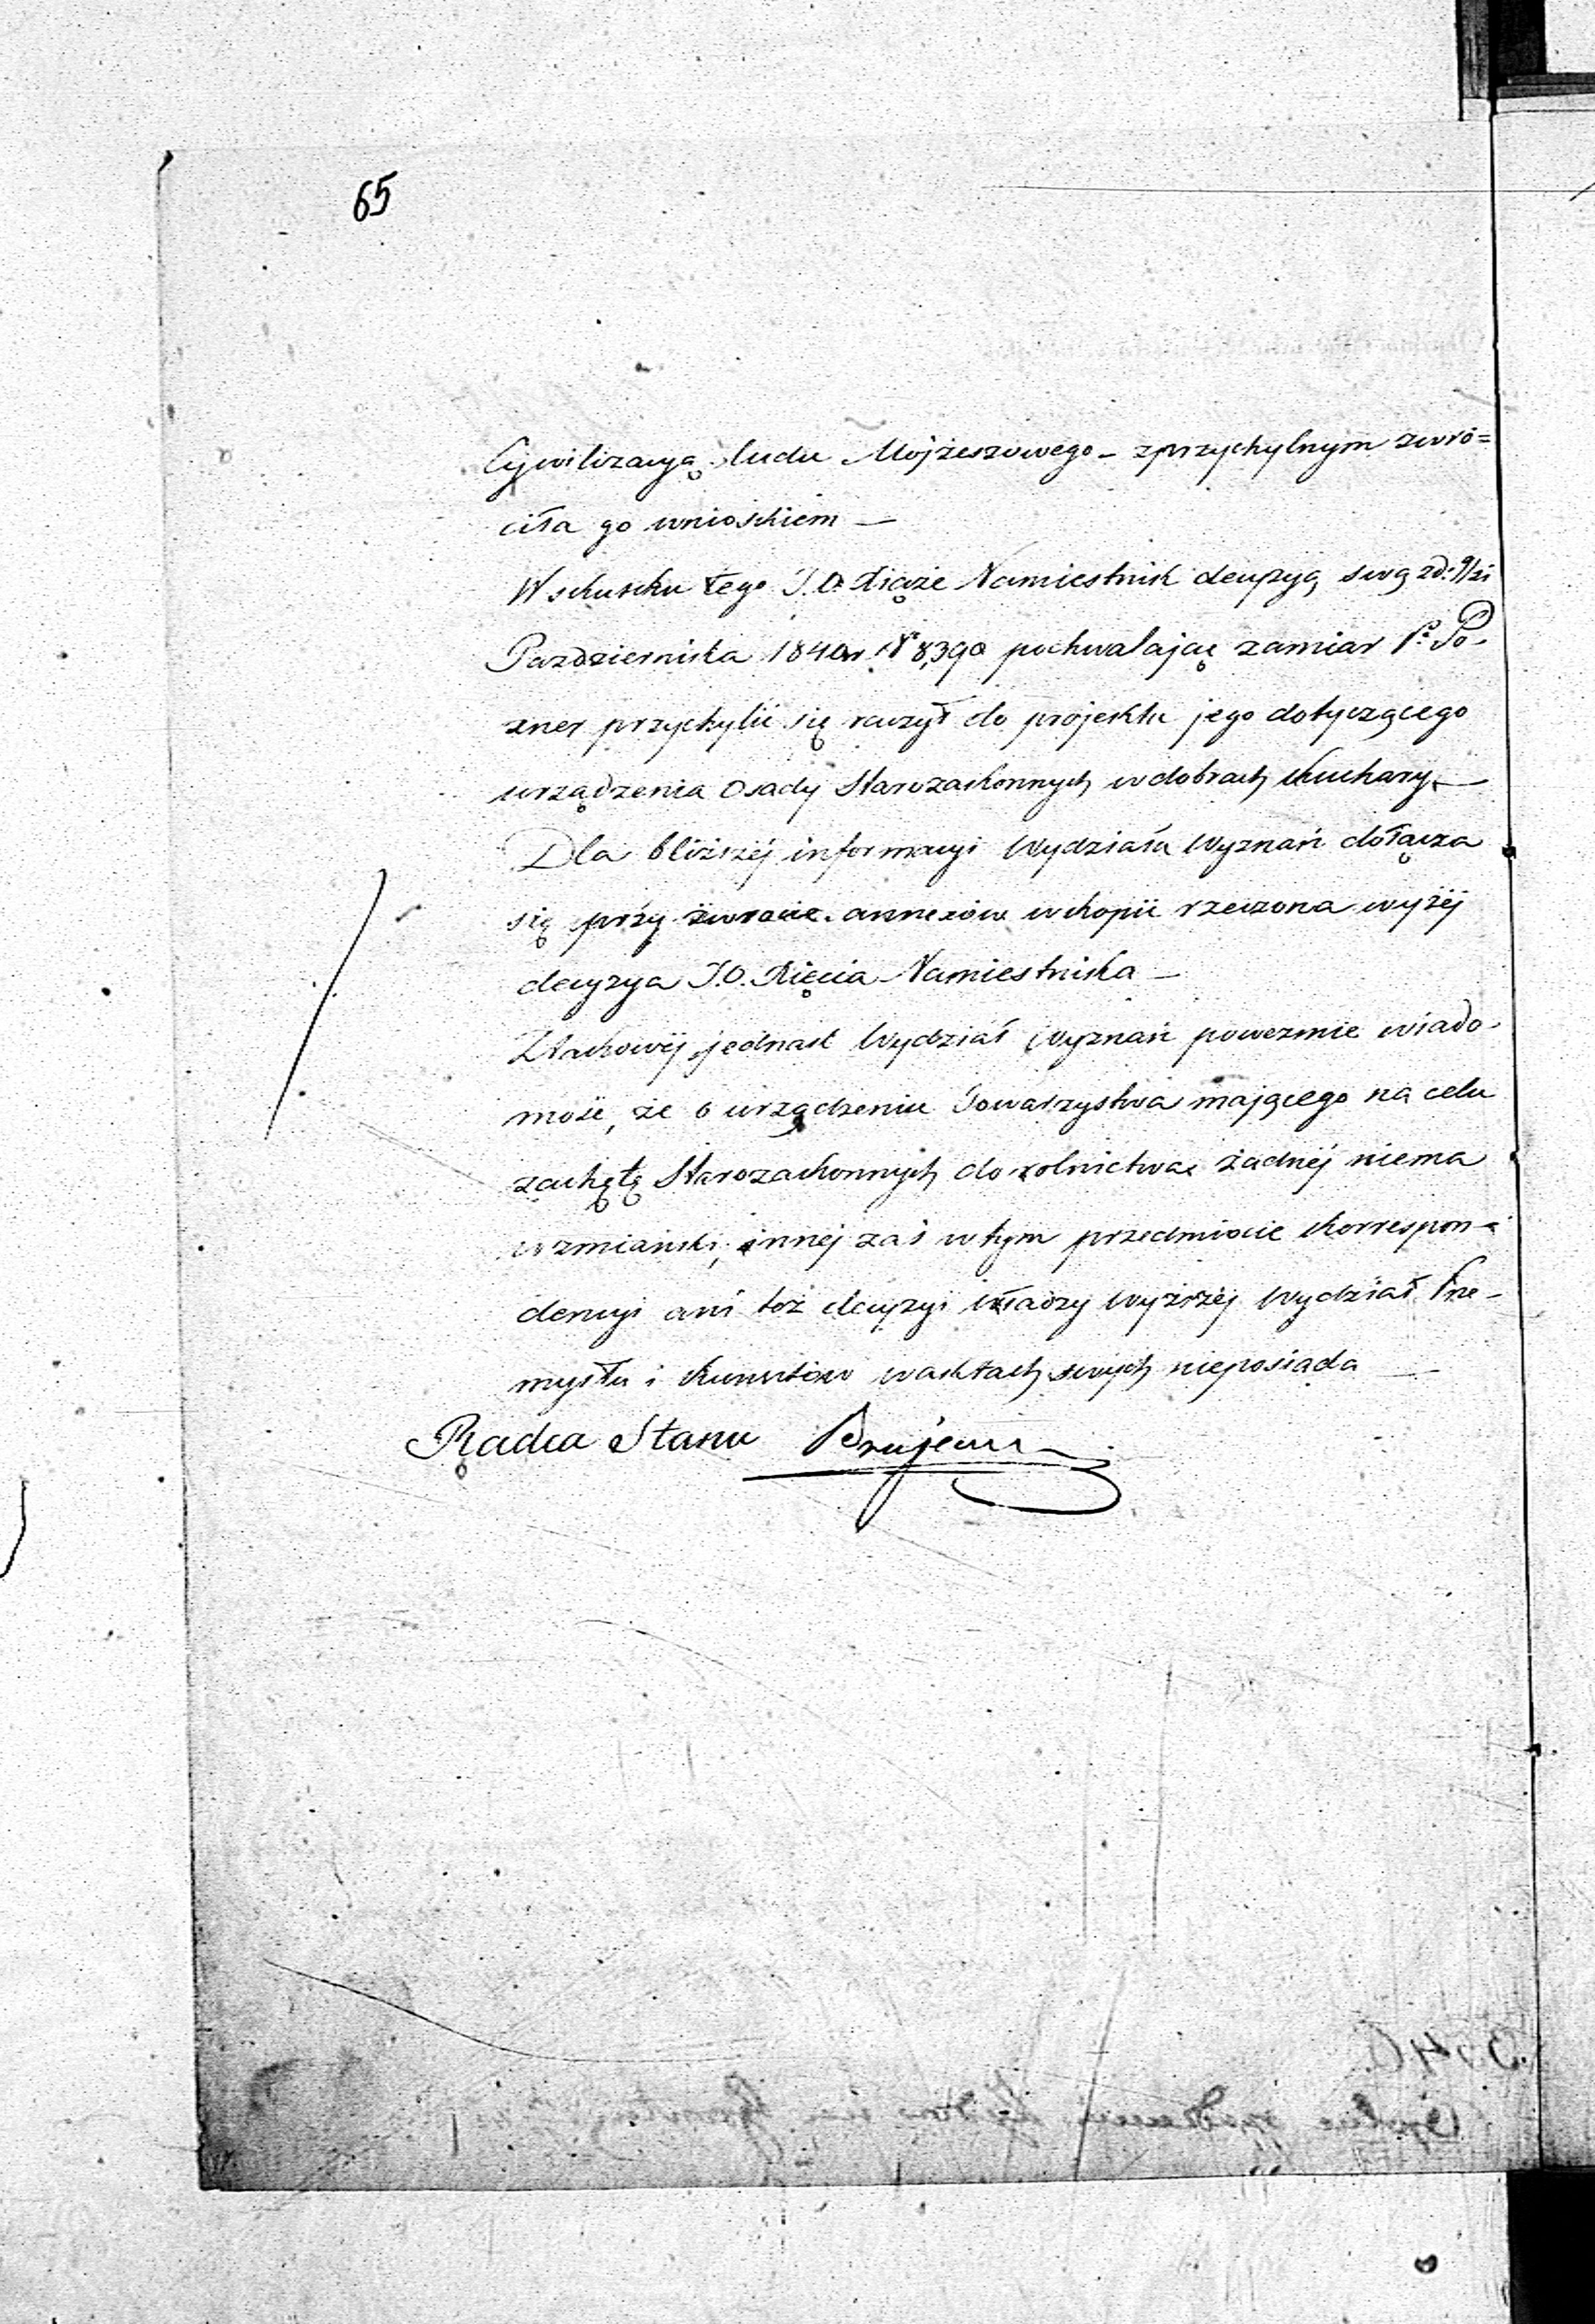 65
Cywilizacyą ludu Mojżeszowego – zprzychylnym zwró=
ciła go wnioskiem —
W skutku tego J.O. Xiąże Namiestnik decyzyą swą zd: 9/21
Października 1840r. Nr 8,390 pochwalając zamiar Po-
zner przychylić się raczył do projektu jego dotyczącego
urządzenia Osady Starozakonnych w dobrach Kuchary. —
Dla bliższéj informacyi Wydziału Wyznań dołącza
się przy zwrocie annexów w kopii rzeczona wyżéj
decyzya J.O. Xięcia Namiestnika —
Z takowéj jednak Wydział Wyznań poweźmie wiado-
mość, że o urządzeniu Towarzystwa mającego na celu
zachętę Starozakonnych do rolnictwa żadnéj niema
wzmianki, innej zaś w tym przedmiocie Korrespon-
dencyi ani też decyzyi Władzy Wyższéj Wydział Prze-
mysłu i Kunsztów w aktach swych nieposiada —
Radca Stanu